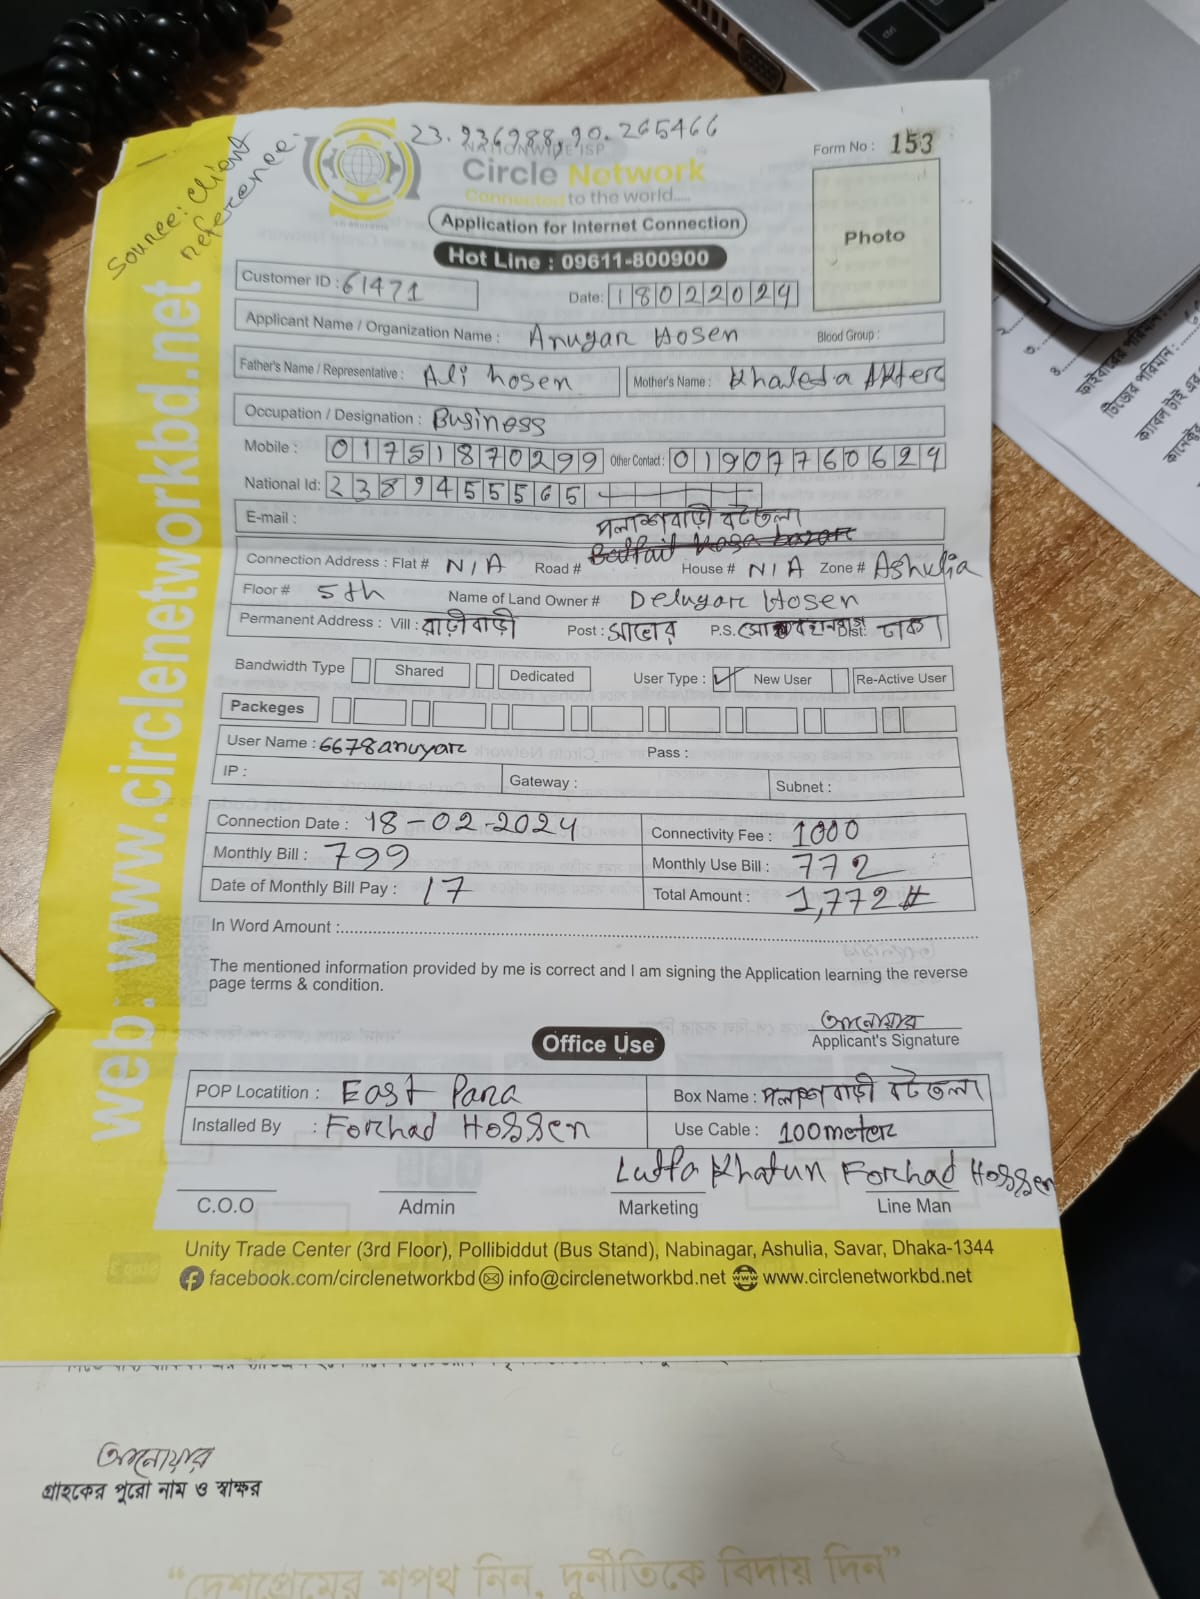 23.936988,90.265466
Source: Client reference.
NATIONWIDE ISP
Circle Network
Connected to the world.....
Form No : 153
Photo
Application for Internet Connection
Hot Line : 09611-800900
Customer ID : 61471
Date: 18022024
Applicant Name / Organization Name : Anuyar Hosen Blood Group :
Father's Name / Representative : Ali hosen Mother's Name : Khaleda Akter
Occupation / Designation : Business
Mobile : 01751870299 Other Contact : 01907760624
National Id: 2389455565
E-mail :
পলাশবাড়ী বটতলা
Connection Address : Flat # N/A Road # House # N/A Zone # Ashulia
Floor # 5th Name of Land Owner # Deluyar Hosen
Permanent Address : Vill : রাড়ীবাড়ী Post : সাভার P.S. Dist: ঢাকা
Bandwidth Type Shared Dedicated User Type : ✓ New User Re-Active User
Packeges
User Name : 6678anuyar Pass :
IP : Gateway : Subnet :
Connection Date : 18-02-2024 Connectivity Fee : 1000
Monthly Bill : 799 Monthly Use Bill : 772
Date of Monthly Bill Pay : 17 Total Amount : 1,772#
In Word Amount :
The mentioned information provided by me is correct and I am signing the Application learning the reverse
page terms & condition.
আনোয়ার
Applicant's Signature
Office Use
POP Locatition : East Para Box Name : পলাশবাড়ী বটতলা
Installed By : Forhad Hossen Use Cable : 100meter
Lutfa Khatun Forhad Hossen
C.O.O Admin Marketing Line Man
Unity Trade Center (3rd Floor), Pollibiddut (Bus Stand), Nabinagar, Ashulia, Savar, Dhaka-1344
facebook.com/circlenetworkbd info@circlenetworkbd.net www.circlenetworkbd.net
web: www.circlenetworkbd.net
আনোয়ার
গ্রাহকের পুরো নাম ও স্বাক্ষর
“দেশপ্রেমের শপথ নিন, দুর্নীতিকে বিদায় দিন”